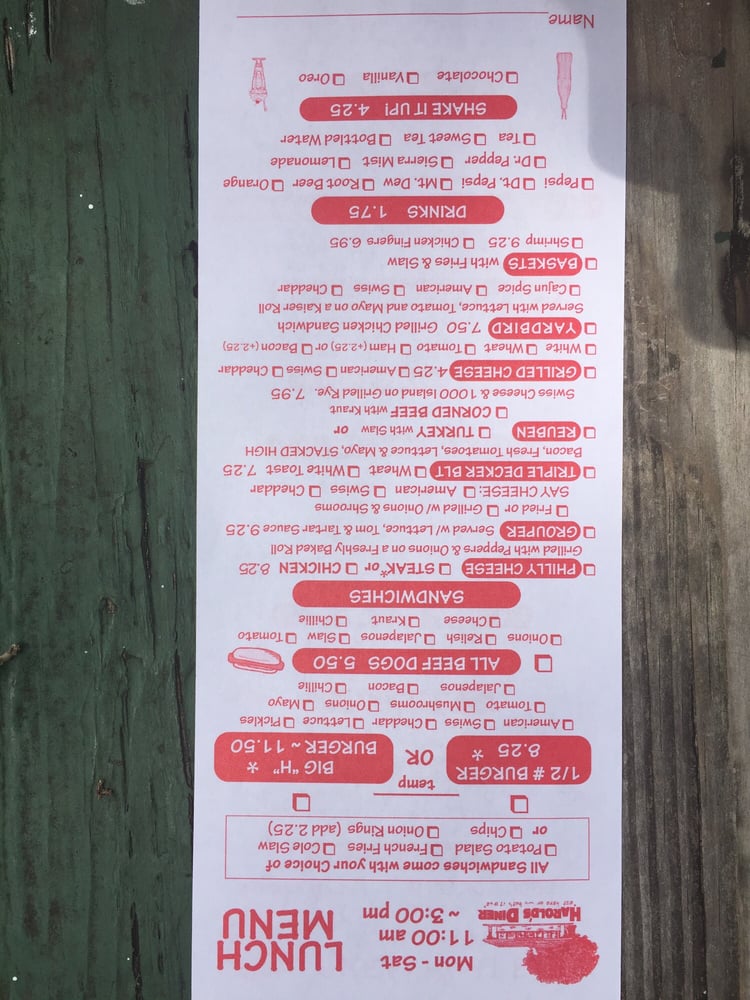 HAROLD'S DINER
Mon - Sat
11:00 am
~ 3:00 pm
LUNCH
MENU
All Sandwiches come with your Choice of
Potato Salad French Fries Cole Slaw
or Chips Onion Rings (add 2.25)
temp
1/2 # BURGER
8.25 *
OR
BIG "H" *
BURGER ~ 11.50
American Swiss Cheddar Lettuce Pickles
Tomato Mushrooms Onions Mayo
Jalapenos Bacon Chillie
ALL BEEF DOGS 5.50
Onions Relish Jalapenos Slaw Tomato
Cheese Kraut Chillie
SANDWICHES
PHILLY CHEESE STEAK* or CHICKEN 8.25
Grilled with Peppers & Onions on a Freshly Baked Roll
GROUPER Served w/ Lettuce, Tom & Tartar Sauce 9.25
Fried or Grilled w/ Onions & Shrooms
SAY CHEESE: American Swiss Cheddar
TRIPLE DECKER BLT Wheat White Toast 7.25
Bacon, Fresh Tomatoes, Lettuce & Mayo, STACKED HIGH
REUBEN TURKEY with Slaw or
CORNED BEEF with Kraut
Swiss Cheese & 1000 Island on Grilled Rye. 7.95
GRILLED CHEESE 4.25 American Swiss Cheddar
White Wheat Tomato Ham (+2.25) or Bacon (+2.25)
YARDBIRD 7.50 Grilled Chicken Sandwich
Served with Lettuce, Tomato and Mayo on a Kaiser Roll
Cajun Spice American Swiss Cheddar
BASKETS with Fries & Slaw
Shrimp 9.25 Chicken Fingers 6.95
DRINKS 1.75
Pepsi Dt. Pepsi Mt. Dew Root Beer Orange
Dr. Pepper Sierra Mist Lemonade
Tea Sweet Tea Botttled Water
SHAKE IT UP! 4.25
Chocolate Vanilla Oreo
Name